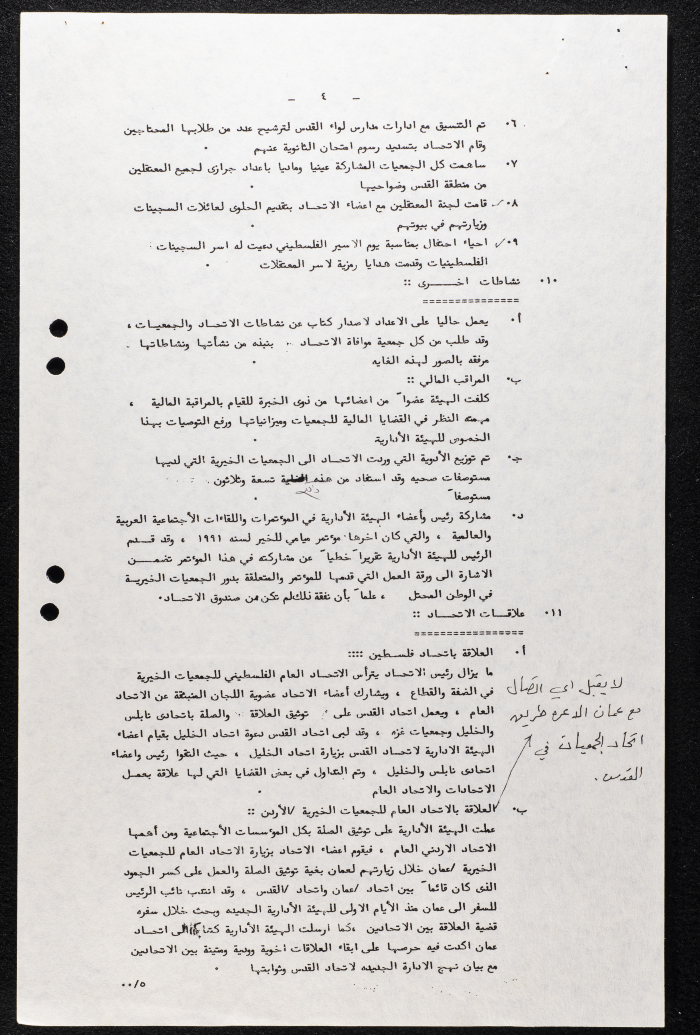 - ٤ -
٠٦ تم التنسيق مع ادارات مدارس لواء القدس لترشيح عدد من طلابها المحتاجين
وقام الاتحاد بتسديد رسوم امتحان الثانوية عنهم ٠
٠٧ ساهمت كل الجمعيات المشاركة عينيا وماديا باعداد جرازى لجميع المعتقلين
من منطقة القدس وضواحيها ٠
٠٨ قامت لجنة المعتقلين مع اعضاء الاتحاد بتقديم الحلوى لعائلات السجينات
وزيارتهم في بيوتهم ٠
٠٩ احياء احتفال بمناسبة يوم الاسير الفلسطيني دعيت له اسر السجينات
الفلسطينيات وقدمت هدايا رمزية لاسر المعتقلات ٠
٠١٠ نشاطات اخـــرى ::
===============
أ٠ يعمل حاليا على الاعداد لاصدار كتاب عن نشاطات الاتحاد والجمعيات ،
وقد طلب من كل جمعية موافاة الاتحاد بنبذه عن نشأتها ونشاطاتها
مرفقه بالصور لهذه الغايه ٠
ب٠ المراقب المالي ::
كلفت الهيئة عضوا" من اعضائها من ذوى الخبرة للقيام بالمراقبة المالية ،
مهمته النظر في القضايا المالية للجمعيات وميزانياتها ورفع التوصيات بهذا
الخصوص للهيئة الأدارية ٠
ج٠ تم توزيع الأدوية التي وردت الاتحاد الى الجمعيات الخيرية التي لديها
مستوصفات صحيه وقد استفاد من هذه تسعة وثلاثون
مستوصفا" ٠
د٠ مشاركة رئيس وأعضاء الهيئة الأدارية في المؤتمرات واللقاءات الأجتماعية العربية
والعالمية ، والتي كان اخرها مؤتمر ميامي للخير لسنه ١٩٩١ ، وقد قـــدم
الرئيس للهيئة الأدارية تقريرا" خطيا" عن مشاركته في هذا المؤتمر تضمـــن
الاشارة الى ورقة العمل التي قدمها للمؤتمر والمتعلقة بدور الجمعيات الخيريـة
في الوطن المحتل ، علما" بأن نفقة ذلك لم تكن من صندوق الاتحاد٠
٠١١ علاقــات الاتحــاد ::
=================
أ٠ العلاقة باتحاد فلسطين ::::
ما يزال رئيس الاتحاد يترأس الاتحاد العام الفلسطيني للجمعيات الخيرية
في الضفة والقطاع ، ويشارك أعضاء الاتحاد عضوية اللجان المنبثقة عن الاتحاد
العام ، ويعمل اتحاد القدس على توثيق العلاقة والصلة باتحادى نابلس
والخليل وجمعيات غزه ، وقد لبى اتحاد القدس دعوة اتحاد الخليل بقيام اعضاء
الهيئة الادارية لاتحاد القدس بزيارة اتحاد الخليل ، حيث التقوا رئيس واعضاء
اتحادى نابلس والخليل ، وتم التداول في بعض القضايا التي لها علاقة بعمل
الاتحادات والاتحاد العام ٠
ب٠ العلاقة بالاتحاد العام للجمعيات الخيرية /الأردن ::
عملت الهيئة الأدارية على توثيق الصلة بكل المؤسسات الأجتماعية ومن أهمها
الاتحاد الاردني العام ، فيقوم اعضاء الاتحاد بزيارة الاتحاد العام للجمعيات
الخيرية /عمان خلال زيارتهم لعمان بغية توثيق الصلة والعمل على كسر الجمود
الذى كان قائما" بين اتحاد /عمان واتحاد /القدس ، وقد انتدب نائب الرئيس
للسفر الى عمان منذ الأيام الاولى للهيئة الأدارية الجديده وبحث خلال سفره
قضية العلاقة بين الاتحادين ،كما ارسلت الهيئة الأدارية كتابا الى اتحــاد
عمان اكدت فيه حرصها على ابقاء العلاقات اخوية وودية ومتينة بين الاتحادين
مع بيان نهج الادارة الجديده لاتحاد القدس وثوابتها ٠
٠٠/٥
لا يقبل اي اتصال
مع عمان الا عن طريق
اتحاد الجمعيات في
القدس .